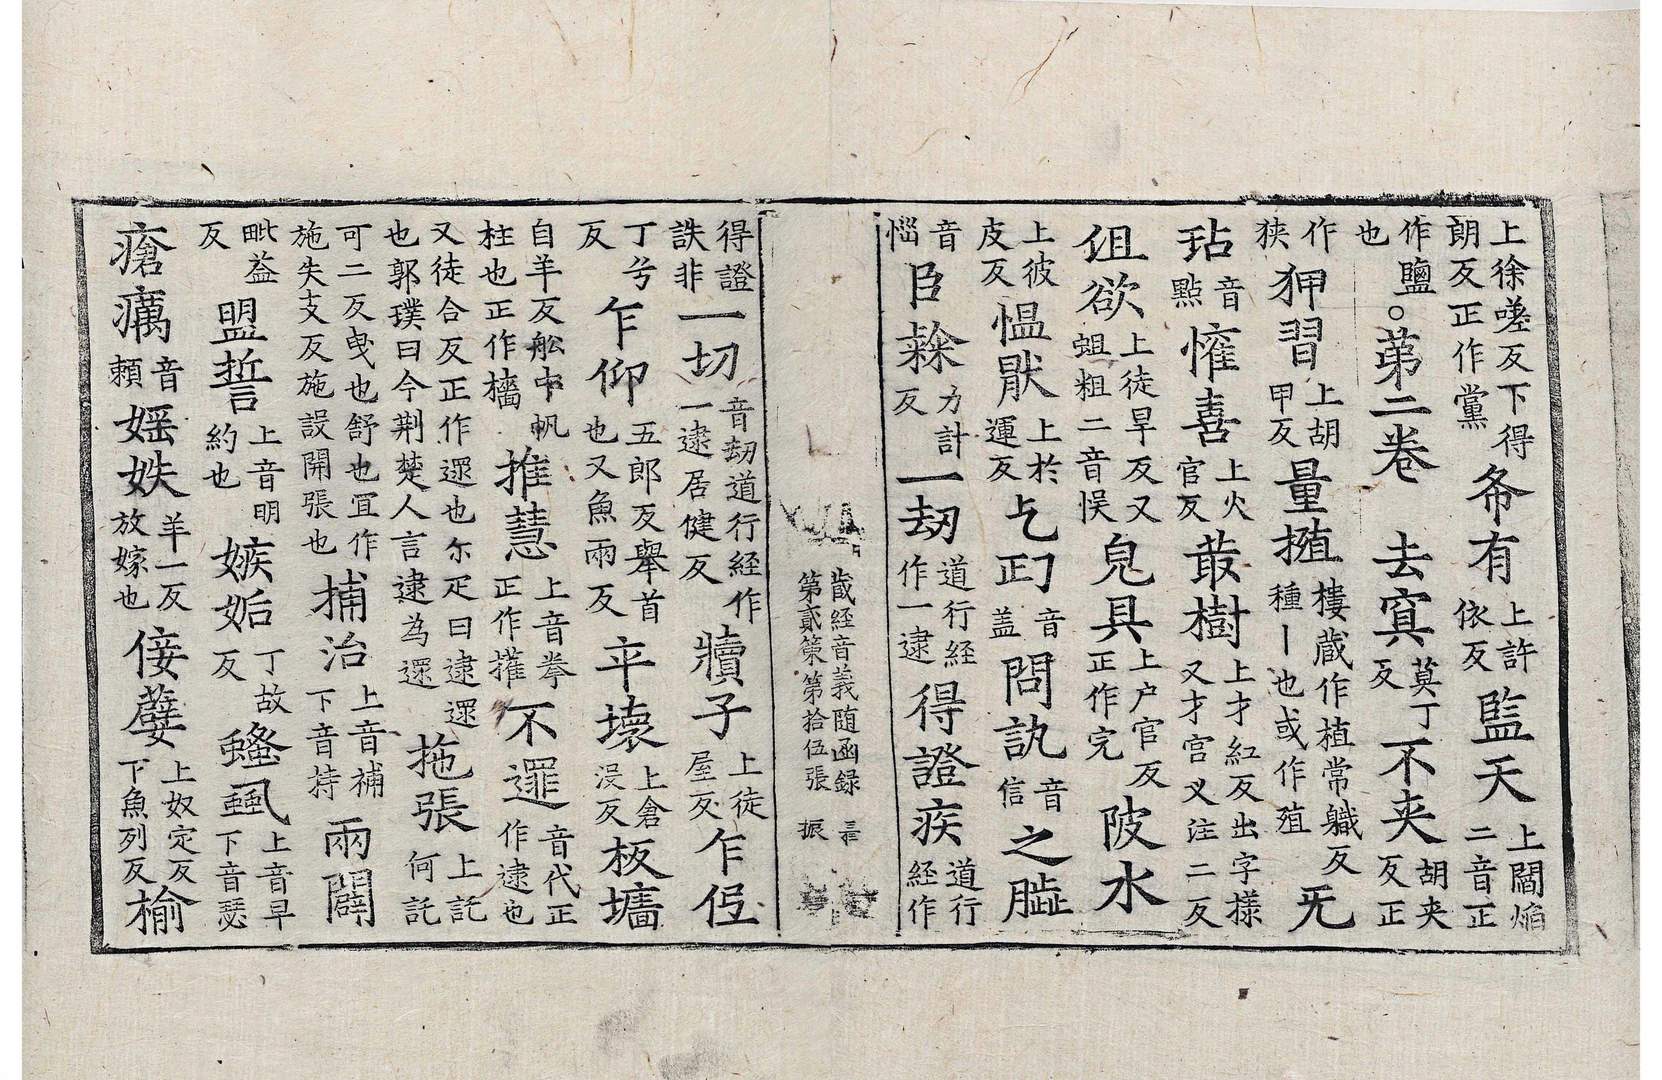 上徐嗟反下得朗反正作黨希有上許依反監天上閻焔二音正
作鹽也○苐二卷　去寘莫丁反不夹胡夹反正
作狭狎習上胡甲反量㨁樓蔵作植常軄反種丨也或作殖旡
玷音點懽喜上火官反菆樹上才紅反出字樣又才官义注二反
伹欲上徒旱反又蛆粗二音悮皃具上户官反正作完陂水
上彼皮反愠猒上於運反乞匃音盖問訙音信之
音惱臣隸力計反一刧道行経作一逮得證疾道行経作
蔵経音義随函録　三
第貳策第拾伍張　振
得證詄非一切音刧道行経作一逮居健反犢子上徒屋反乍
丁兮反乍仰五郎反舉首也又魚兩反平壊上倉浸反板墻
自羊反舩中帆柱也正作檣推慧上音拳正作㩲不遝音代正作逮也
又徒合反正作遝也尓疋曰逮遝也郭璞曰今荆楚人言逮為遝拖張上託何託
可二反曵也舒也冝作施失支反施設開張也捕治上音補下音持兩闢
毗益反盟誓上音明約也嫉妬丁故反虱上音早下音瑟
瘡癘音頼婬妷羊一反放嫁也侫孽上奴定反下魚列反榆